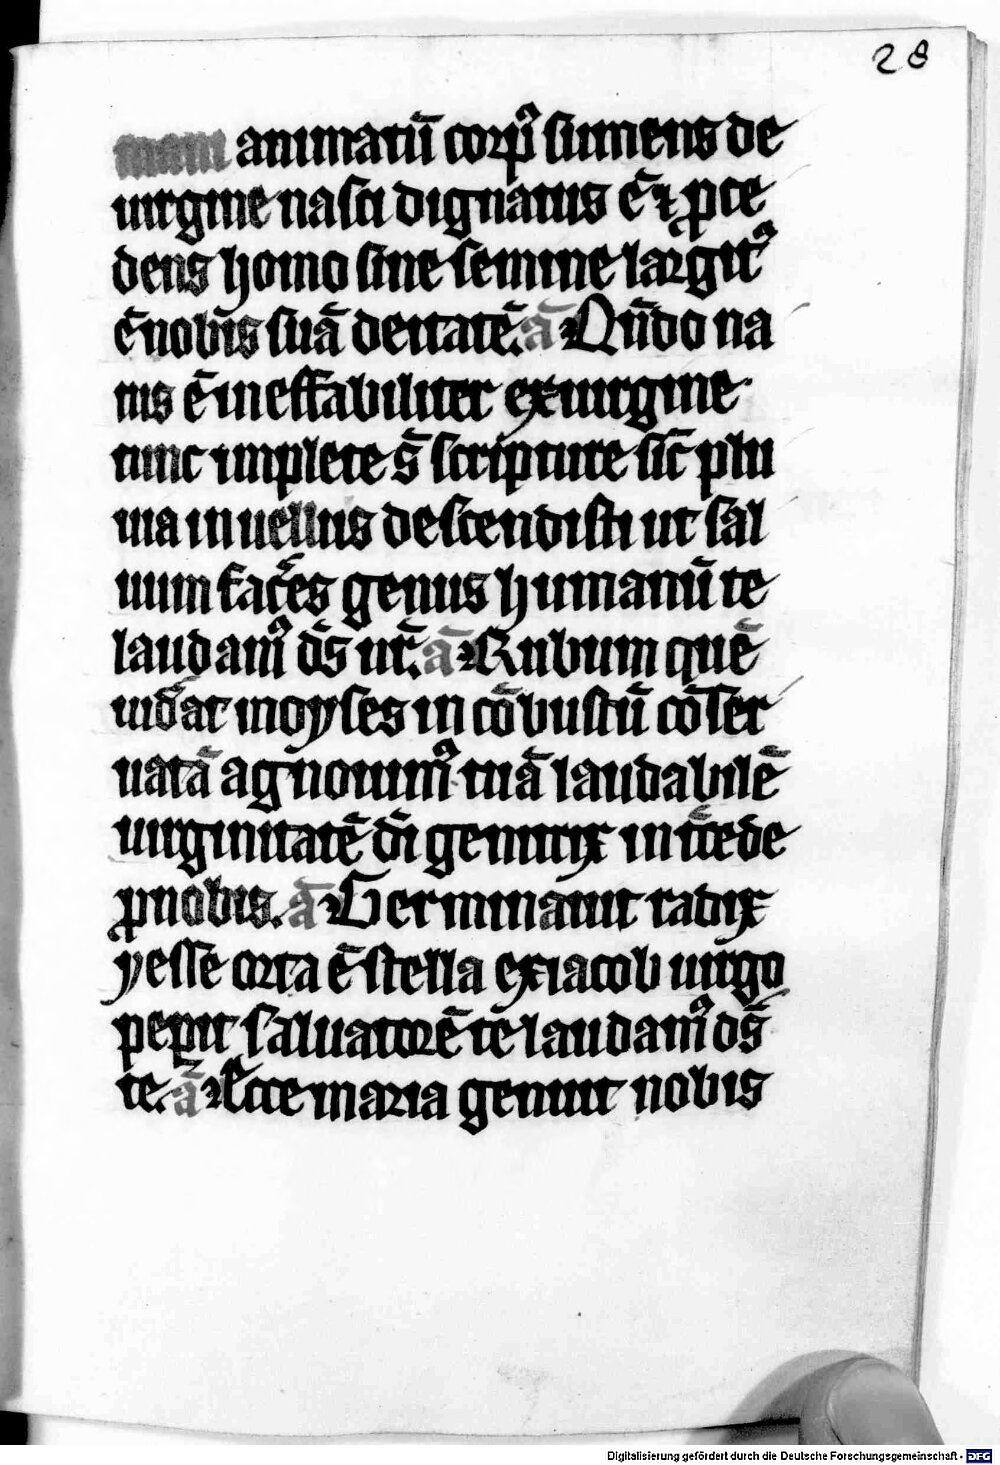 28
animatū corpꝰ sumens de
uirgine nasci dignatus ē ⁊ ꝓce
dens homo sine semine largitꝰ
ē nobis suā deitatē. ā Qn̄do na
tus ē ineffabiliter ex uirgine
tunc implete s̄ scripture sic̄ plu
uia in uellus descendisti ut sal
uum facēs genus humanū te
laudamꝰ d̄s nr̄. ā Rubum quē
uid̄at moyses incōbustū cōser
uatā agnouimꝰ tuā laudabilē
uirginitatē d̄i genitrix int̄cede
ꝓ nobis. ā Germinauit radix
yesse orta ē stella ex iacob uirgo
peꝑit saluatorē te laudamꝰ d̄s
te. ā Ecce maria genuit nobis
Digitalisierung gefördert durch die Deutsche Forschungsgemeinschaft - DFG